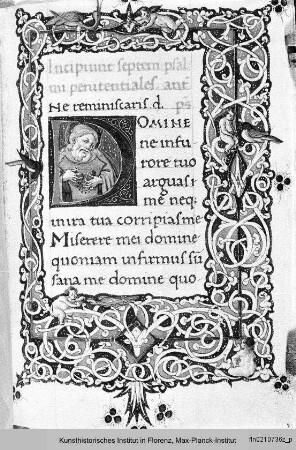 Incipiunt septem psal
mi penitentiales. ant̄
Ne reminiscaris d. ps̄
DOMINE
ne in fu
rore tuo
arguas i
me neq.
in ira tua corripias me
Miserere mei domine
quoniam infirmus su
sana me domine quo
Kunsthistorisches Institut in Florenz, Max-Planck-Institut
fln0210736z_p